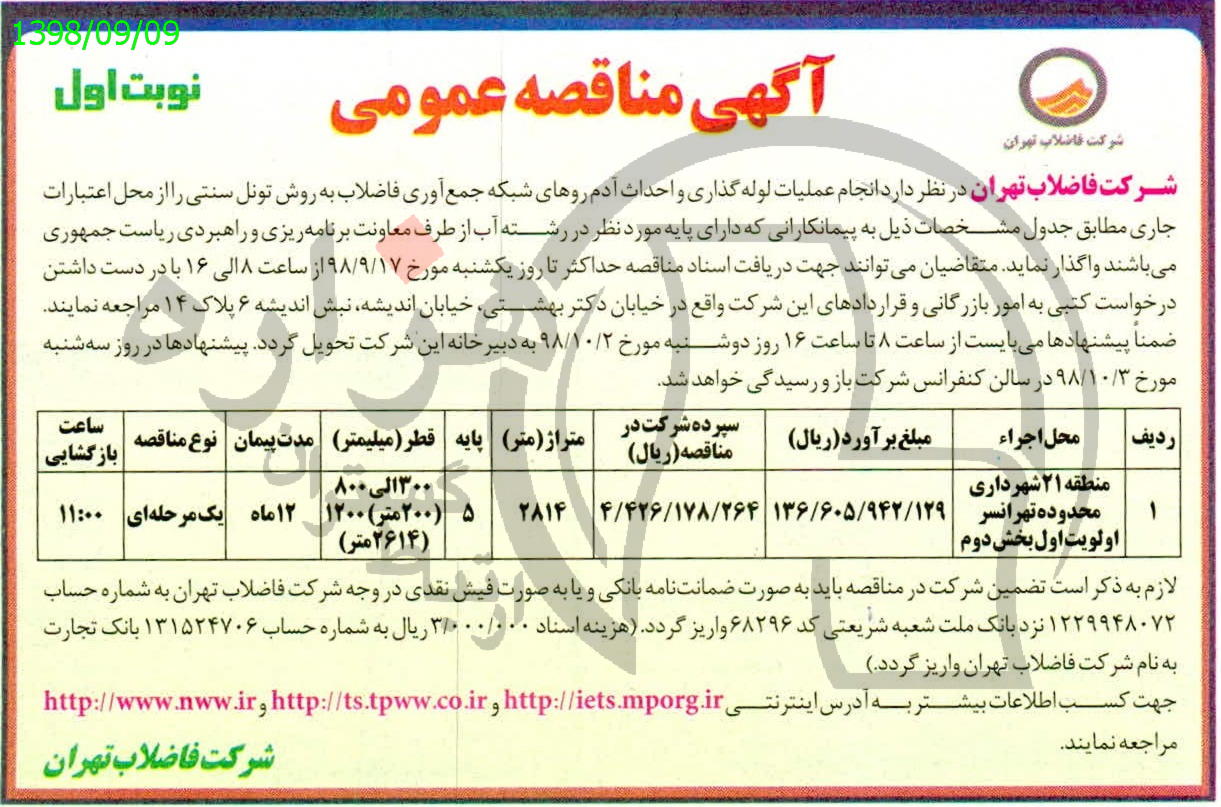 1398/09/09
شرکت فاضلاب تهران
آگهی مناقصه عمومی
نوبت اول
شرکت فاضلاب تهران در نظر دارد انجام عملیات لوله گذاری و احداث آدم روهای شبکه جمع آوری فاضلاب به روش تونل سنتی را از محل اعتبارات
جاری مطابق جدول مشخصات ذیل به پیمانکارانی که دارای پایه مورد نظر در رشته آب از طرف معاونت برنامه ریزی و راهبردی ریاست جمهوری
می باشند واگذار نماید. متقاضیان می توانند جهت دریافت اسناد مناقصه حداکثر تا روز یکشنبه مورخ ۹۸/۹/۱۷ از ساعت ۸ الی ۱۶ با در دست داشتن
درخواست کتبی به امور بازرگانی و قراردادهای این شرکت واقع در خیابان دکتر بهشتی، خیابان اندیشه، نبش اندیشه ۶ پلاک ۱۴ مراجعه نمایند.
ضمناً پیشنهادها می بایست از ساعت ۸ تا ساعت ۱۶ روز دوشنبه مورخ ۹۸/۱۰/۲ به دبیرخانه این شرکت تحویل گردد. پیشنهادها در روز سه شنبه
مورخ ۹۸/۱۰/۳ در سالن کنفرانس شرکت باز و رسیدگی خواهد شد.
ردیف محل اجراء مبلغ برآورد (ریال) سپرده شرکت در مناقصه (ریال) متراژ (متر) پایه قطر (میلیمتر) مدت پیمان نوع مناقصه ساعت بازگشایی
۱ منطقه ۲۱ شهرداری محدوده تهرانسر اولویت اول بخش دوم ۱۳۶/۶۰۵/۹۴۲/۱۲۹ ۴/۴۲۶/۱۷۸/۲۶۴ ۲۸۱۴ ۵ ۳۰۰ الی ۸۰۰ (۲۰۰ متر) ۱۲۰۰ (۲۶۱۴ متر) ۱۲ ماه یک مرحله ای ۱۱:۰۰
لازم به ذکر است تضمین شرکت در مناقصه باید به صورت ضمانت نامه بانکی و یا به صورت فیش نقدی در وجه شرکت فاضلاب تهران به شماره حساب
۱۲۲۹۹۴۸۰۷۲ نزد بانک ملت شعبه شریعتی کد ۶۸۲۹۶ واریز گردد. (هزینه اسناد ۳/۰۰۰/۰۰۰ ریال به شماره حساب ۱۳۱۵۲۴۷۰۶ بانک تجارت
به نام شرکت فاضلاب تهران واریز گردد.)
جهت کسب اطلاعات بیشتر به آدرس اینترنتی http://iets.mporg.ir و http://ts.tpww.co.ir و http://www.nww.ir
مراجعه نمایند.
شرکت فاضلاب تهران
هزاره